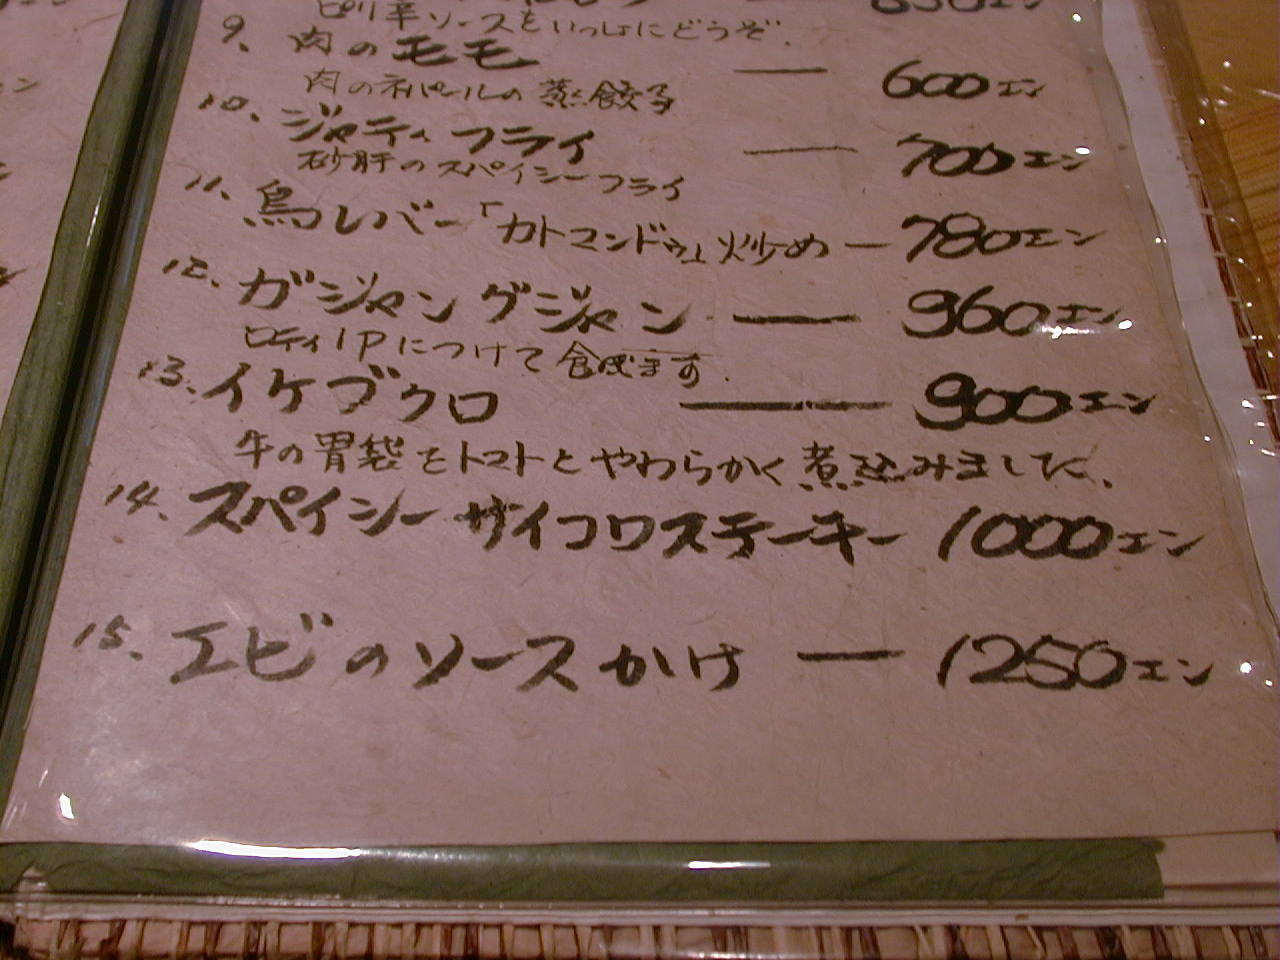 ピリ辛ソースをいっしょにどうぞ.
9. 肉のモモ — 600エン
肉のネパールの蒸餃子
10. ジャティ フライ — 700エン
砂肝のスパイシーフライ
11. 鳥レバー「カトマンドゥ」炒め — 780エン
12. ガジャングジャン — 960エン
ロティ1Pにつけて食べます.
13. イケブクロ — 900エン
牛の胃袋をトマトとやわらかく煮込みました、
14. スパイシー サイコロステーキー 1000エン
15. エビのソースかけ — 1250エン